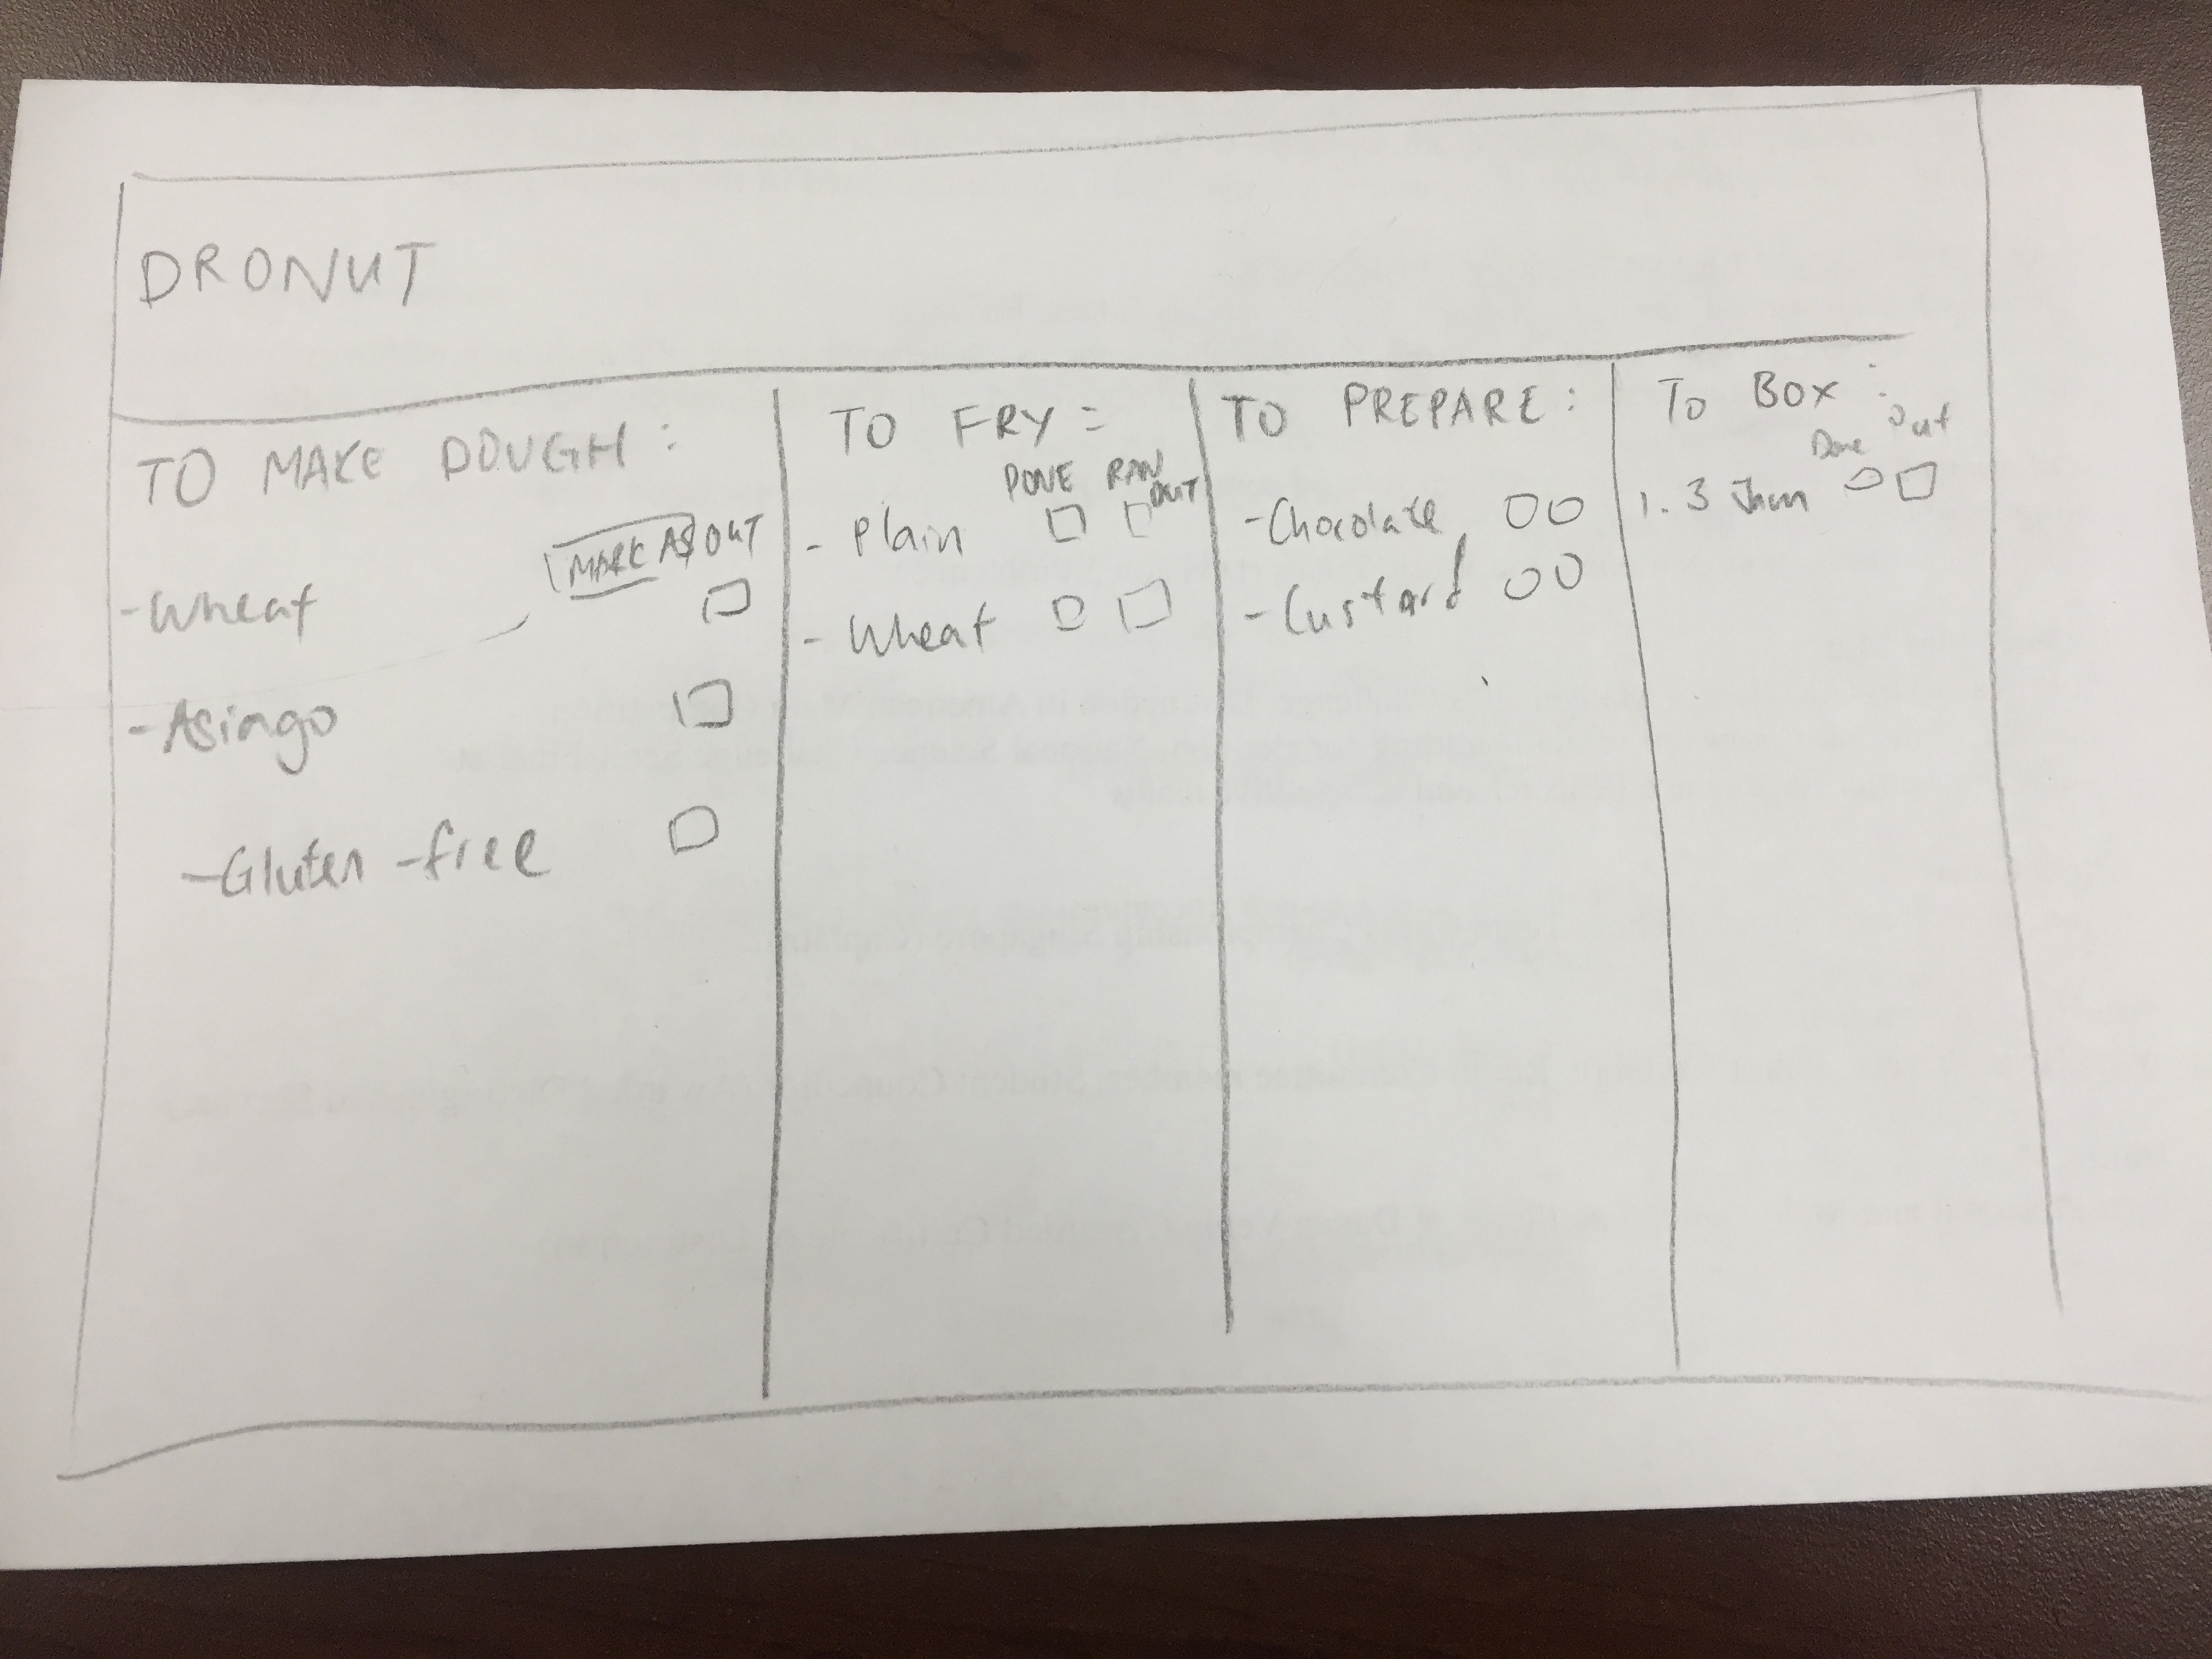 DRONUT
TO MAKE DOUGH :
MARK AS OUT
- Wheat
- Asiago
- Gluten-free
TO FRY :
DONE RAN OUT
- Plain
- Wheat
TO PREPARE :
- Chocolate
- Custard
TO BOX :
Done out
1. 3